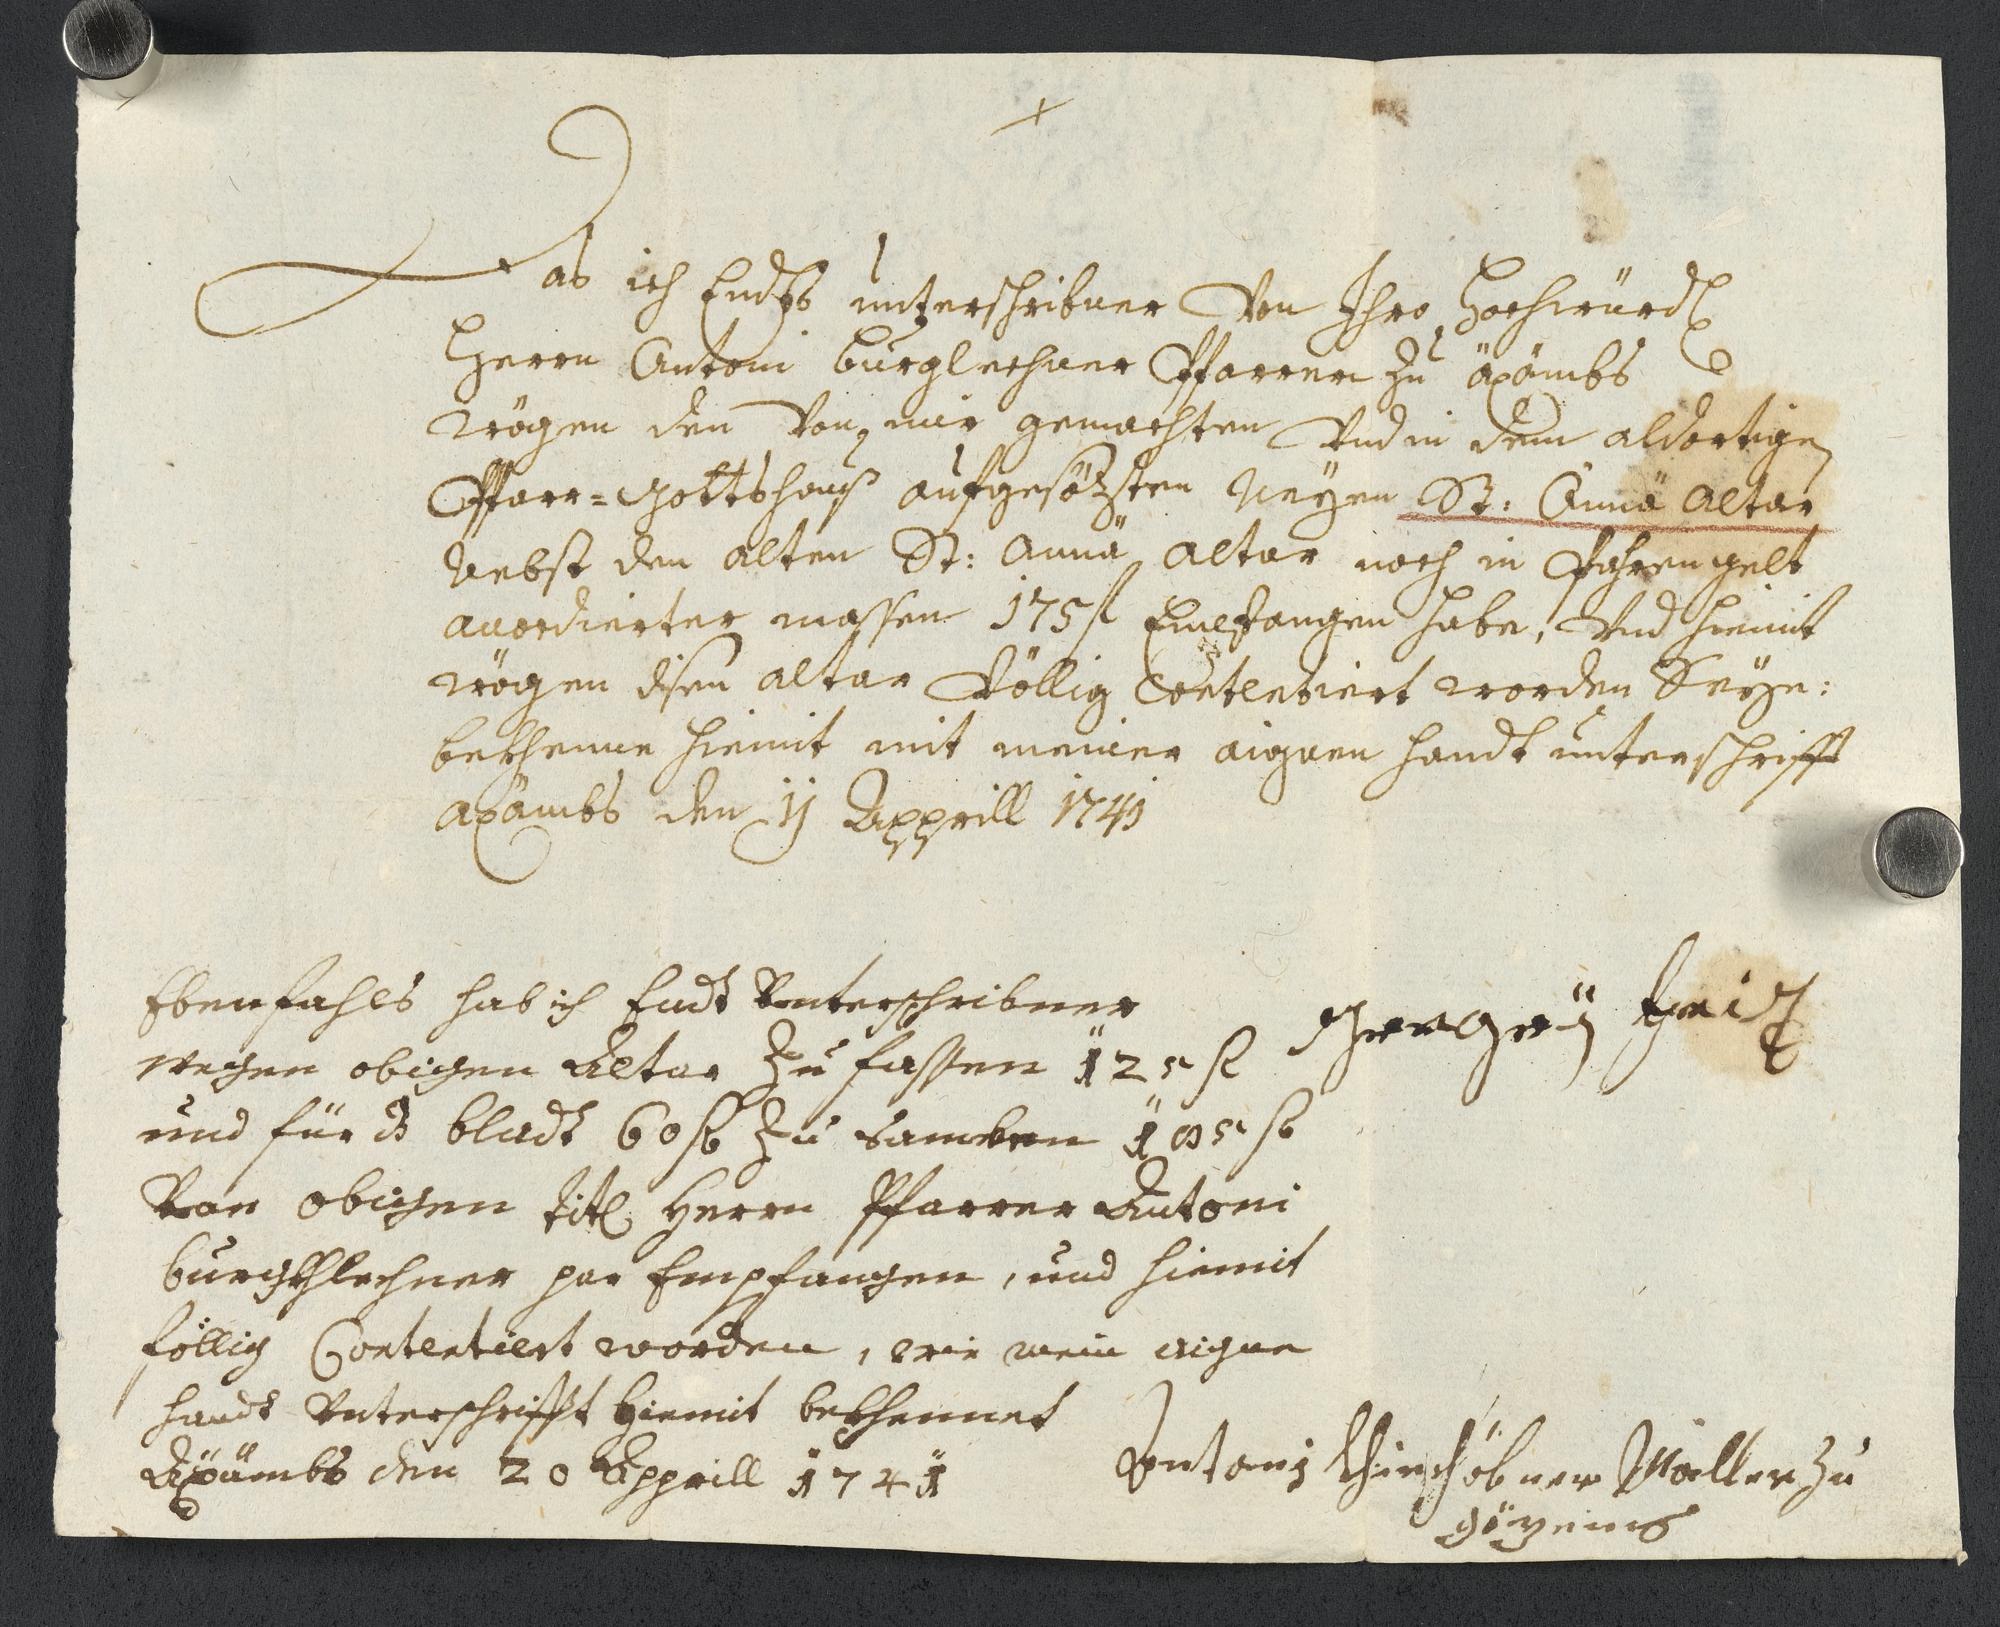 Das ich Endts unterschribner Von Ihro Hochwürdt
Herrn Antoni Burglechner Pfarrer zu äxämbs
wögen den Von mir gemachten Und in dem aldortigen
Pfarr=Gottshauß aufgesötzten Neyen St: Annä Altar
Nebst den alten St: Annä Altar noch in Pahren gelt
accordierter massen 175 fl Empfangen habe, Und hiemit
wögen disen altar Völlig Contentiert worden Seye:
bekhenne hiemit mit meiner aignen handt unterschrifft
axämbs den 11 Apprill 1741
Ebenfahls hab ich Endt Unterschribner
wegen obigen Altar zu fassen 125 fl
und für ds bladt 60 fl zu samben 185 fl
Von obigen titl Herrn Pfarrer Antoni
burgkhlechner par Empfangen, und hiemit
föllig Contentiert worden, wie mein aigne
handt Unterschrifft hiemit bekhennet
Axämbs den 20 Apprill 1741
Antoni Maller zu
Götzens